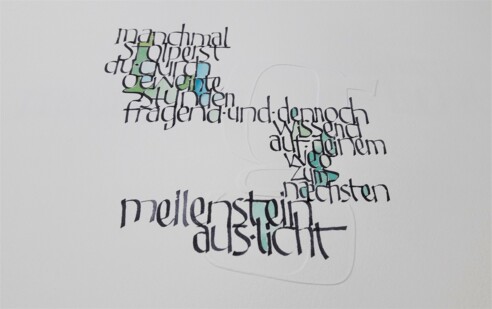 manchmal
stolperst
du·durch
geweinte
stunden
fragend·und·dennoch
wissend
auf·deinem
weg
zum
nächsten
meilenstein
aus·licht